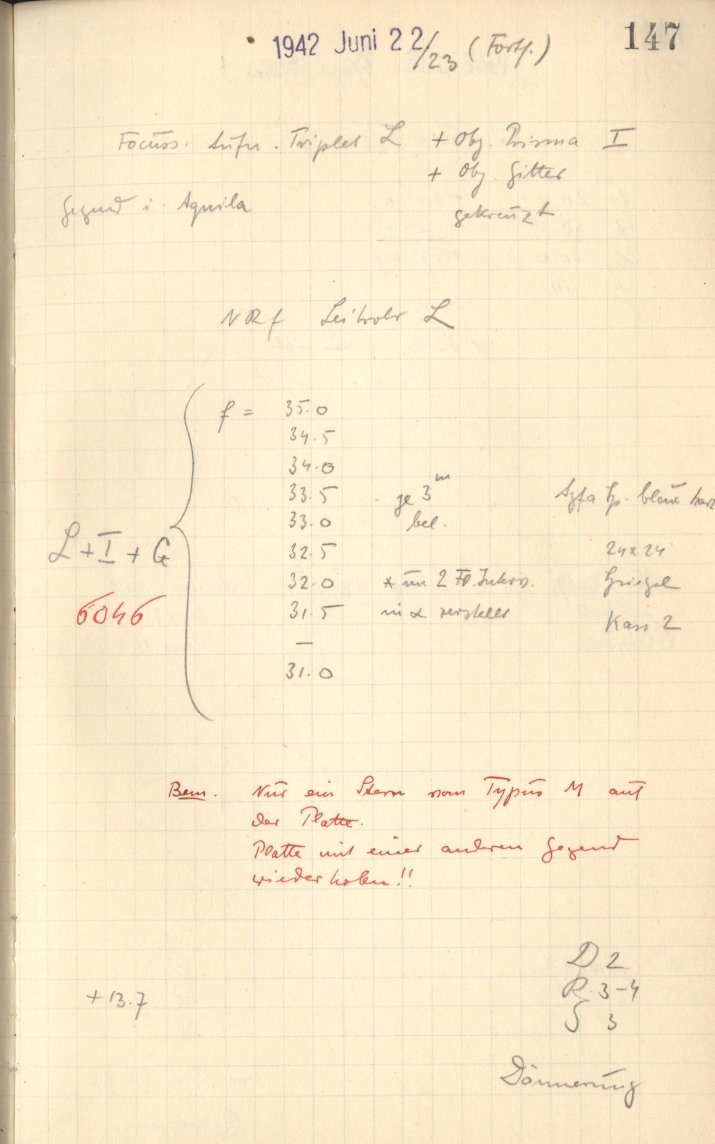 1942 Juni 22/23 (Forts.) 147
Focuss. Aufn. Triplet L + Obj. Prisma I
+ Obj. Gitter
Gegend i. Aquila gekreuzt
Leitrohr L
f = 35.0
34.5
34.0
33.5 je 3ᵐ Agfa Sp. blau
33.0 bel.
L+I+G 32.5 24x24
32.0 * um 2 Spiegel
6046 31.5 in α verstellt Kass 2
—
31.0
Bem. Nur ein Stern vom Typus M auf
der Platte.
Platte mit einer anderen Gegend
wiederholen!!
D 2
+13.7 R 3-4
S 3
Dämmerung